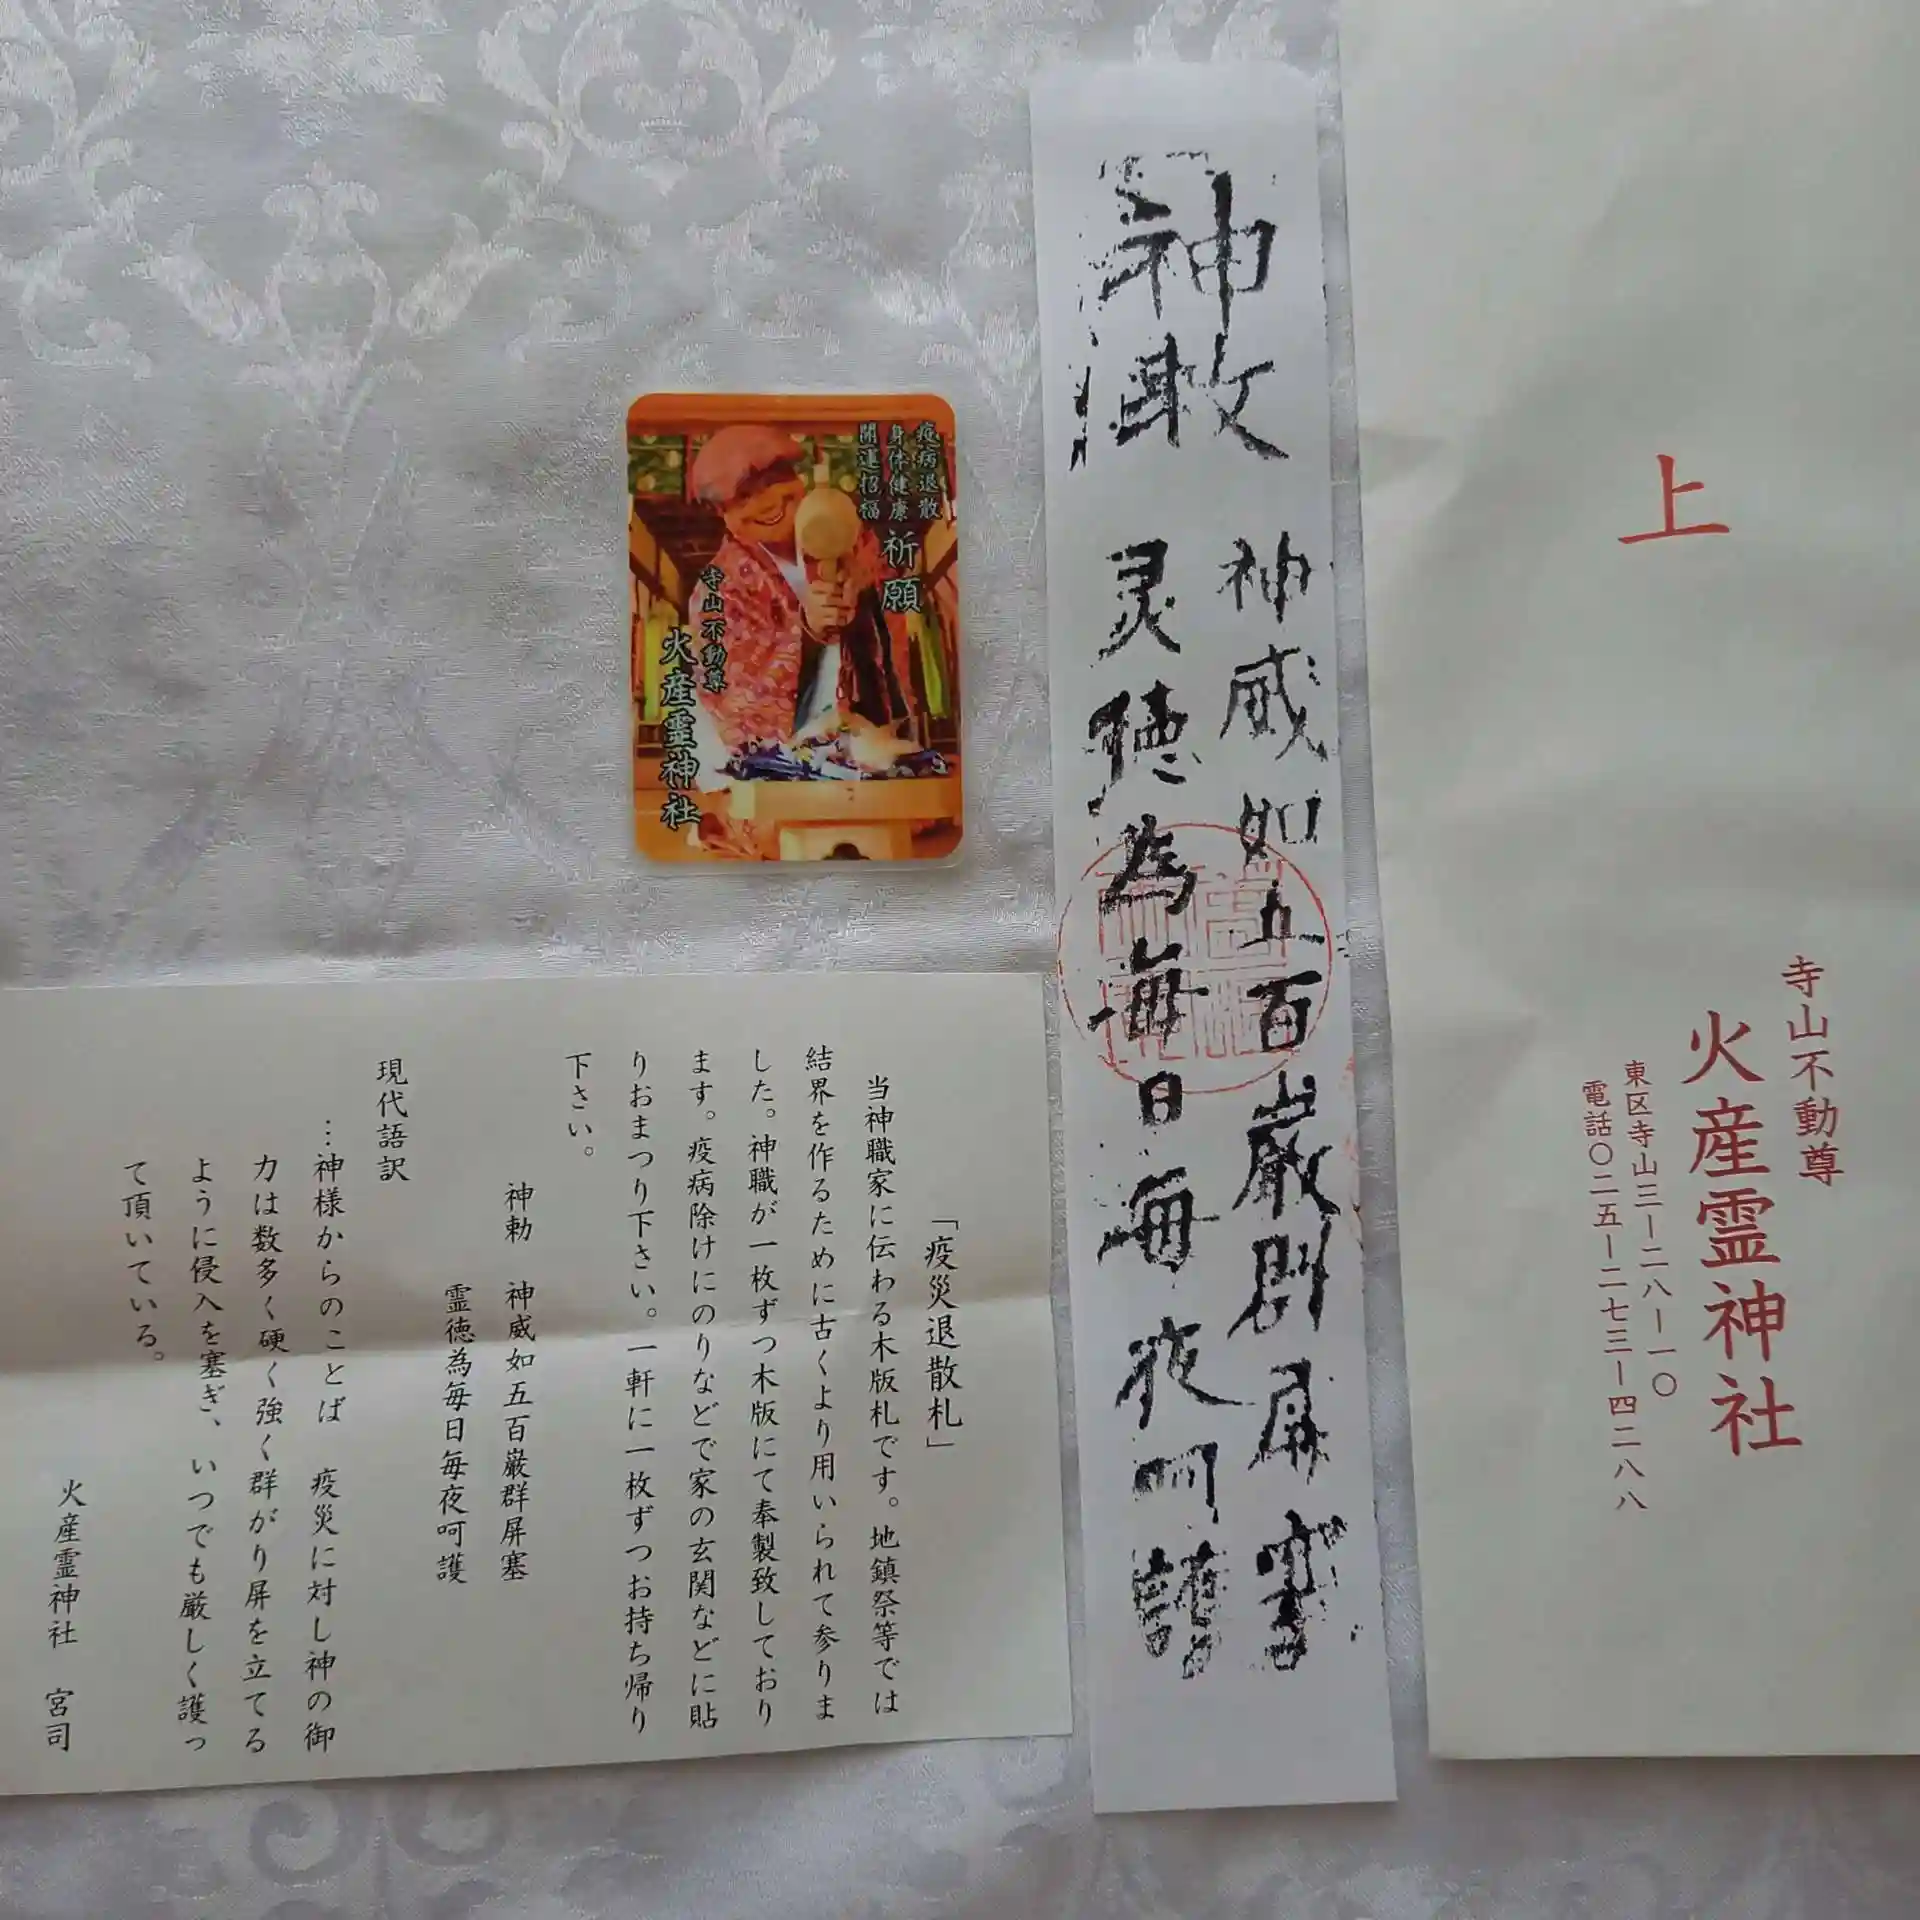 上
寺山不動尊
火産霊神社
東区寺山三ー二八ー一〇
電話〇二五ー二七三ー四二八八
神勅
神威如五百巌群屏塞
灵徳為毎日毎夜呵護
疫病退散
身体健康
開運招福
祈願
寺山不動尊
火産霊神社
「疫災退散札」
当神職家に伝わる木版札です。地鎮祭等では
結界を作るために古くより用いられて参りま
した。神職が一枚ずつ木版にて奉製致しており
ます。疫病除けにのりなどで家の玄関などに貼
りおまつり下さい。一軒に一枚ずつお持ち帰り
下さい。
神勅 神威如五百巌群屏塞
霊徳為毎日毎夜呵護
現代語訳
…神様からのことば 疫災に対し神の御
力は数多く硬く強く群がり屏を立てる
ように侵入を塞ぎ、いつでも厳しく護っ
て頂いている。
火産霊神社 宮司